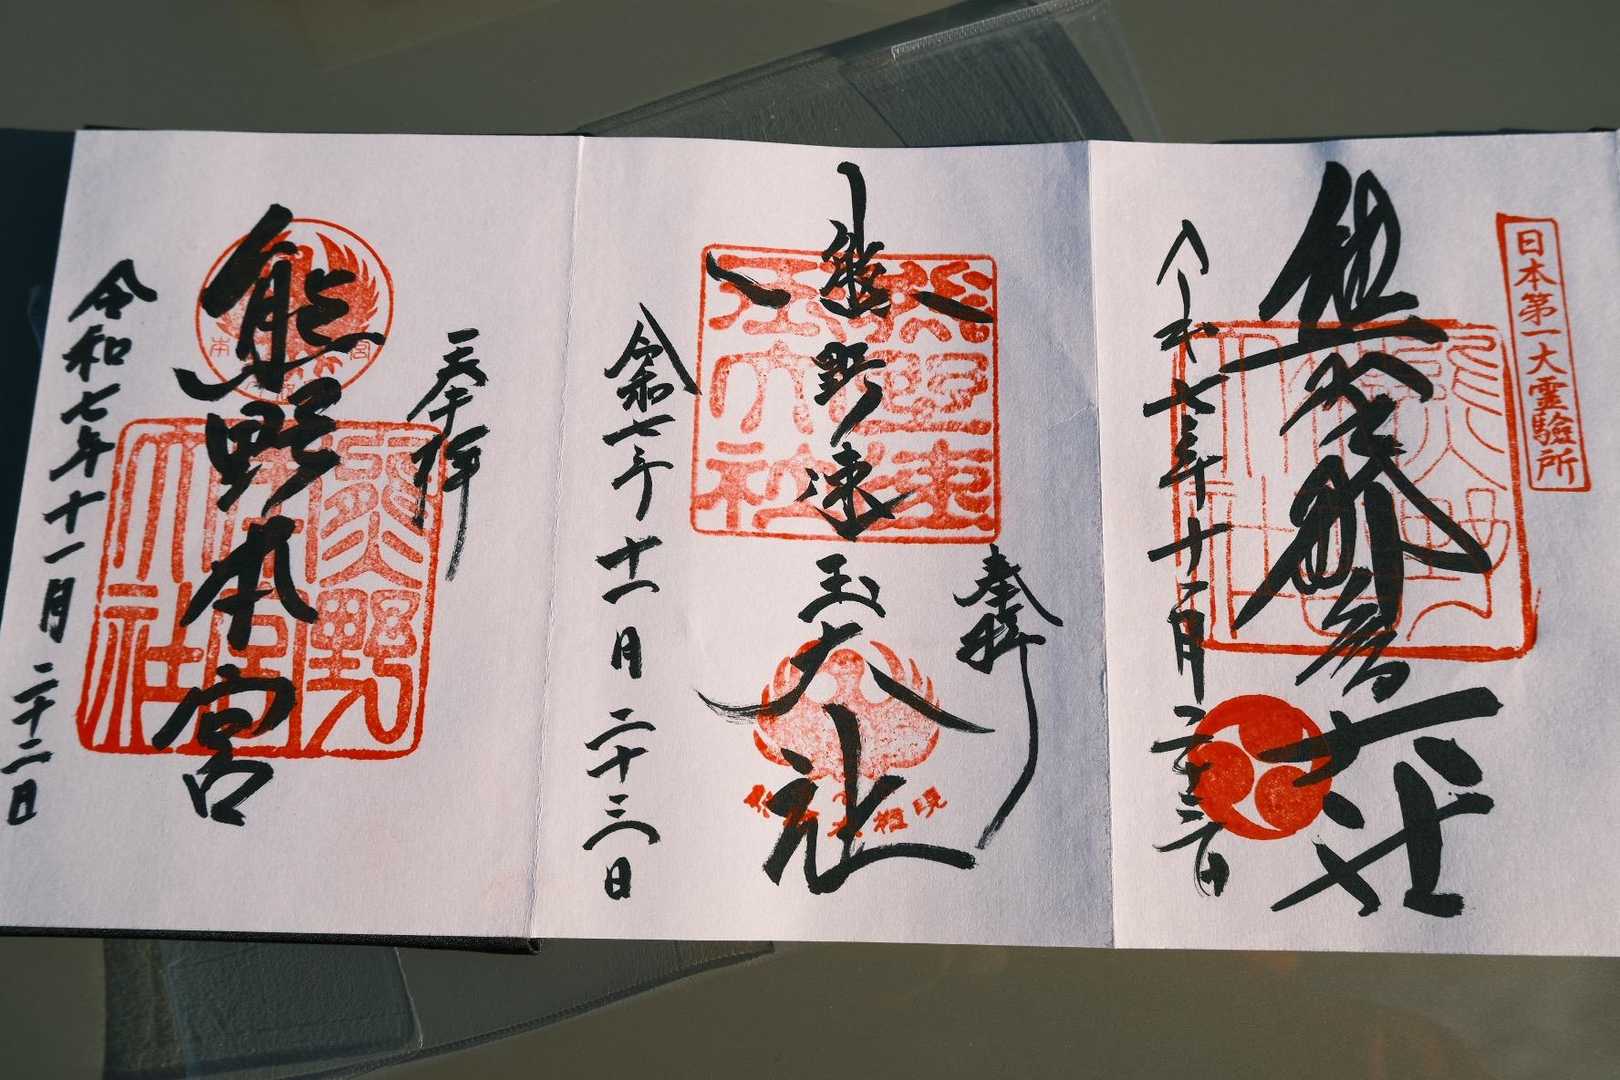 日本第一大霊驗所
熊野那智大社
熊野那智大社
令和七年十一月二十三日
奉拝
熊野速玉大社
熊野速玉大社
令和七年十一月二十三日
奉拝
熊野本宮
熊野本宮大社
令和七年十一月二十二日